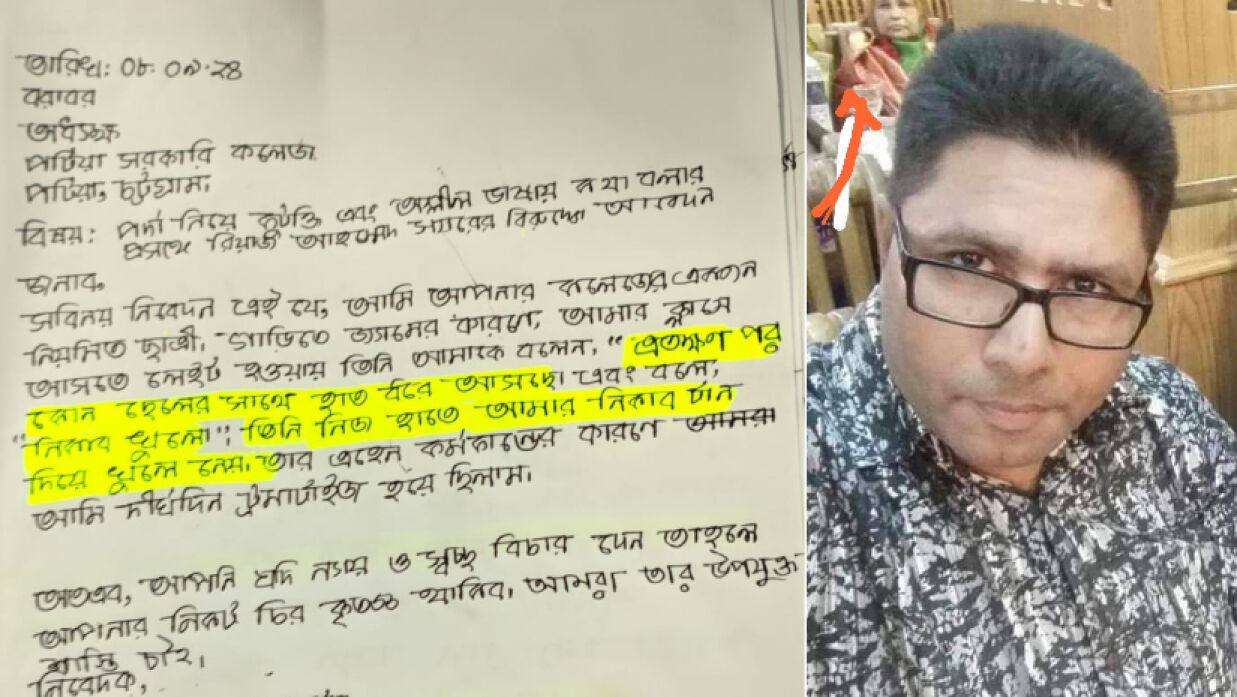 তারিখ: ০৮.০৯.২৪
বরাবর
অধ্যক্ষ
পটিয়া সরকারি কলেজ
পটিয়া, চট্টগ্রাম।
বিষয়: পর্দা নিয়ে কটূক্তি এবং অশ্লীল ভাষায় কথা বলার
প্রসঙ্গে রিয়াজ আহমেদ স্যারের বিরুদ্ধে আবেদন
জনাব,
সবিনয় নিবেদন এই যে, আমি আপনার কলেজের একজন
নিয়মিত ছাত্রী, গাড়িতে জ্যামের কারণে, আমার ক্লাসে
আসতে লেইট হওয়ায় তিনি আমাকে বলেন, "এতক্ষণ পর
কোন ছেলের সাথে হাত ধরে আসছো এবং বলে,
"নিকাব খুলো", তিনি নিজ হাতে আমার নিকাব টান
দিয়ে খুলে নেয়, তার এহেন কর্মকান্ডের কারণে আমরা
আমি দীর্ঘদিন ট্রমাটাইজ হয়ে ছিলাম।
অতএব, আপনি যদি ন্যায় ও স্বচ্ছ বিচার দেন তাহলে
আপনার নিকট চির কৃতজ্ঞ থাকিব, আমরা তার উপযুক্ত
শাস্তি চাই।
নিবেদক,